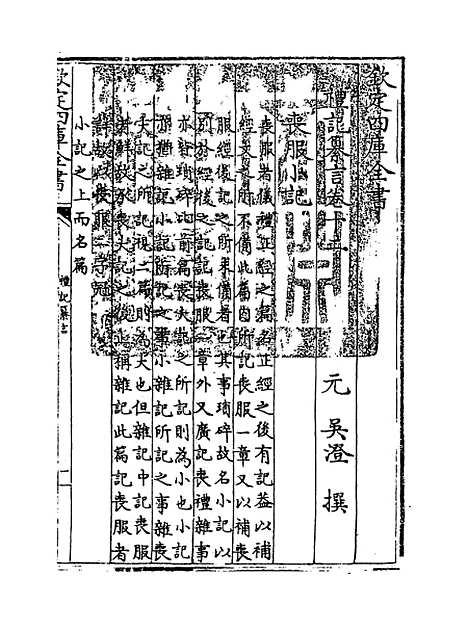 欽定四庫全書
禮記纂言卷十三
元 吳澄 撰
喪服小記
喪服者儀禮正經之篇名正經之後有記蓋以補
經文之所不備此篇內所記喪服一章又以補喪
服經後記之所未備者也其事瑣碎故名小記以
別於經後之記喪服一章外又廣記喪禮雜事
亦皆瑣碎比前篇喪大記之所記則為小也小記
所記雜記所記之事小雜記所記之事雜喪
大記之所記視二篇則為大也但雜記中記喪服
者鮮故於喪大記之後止稱雜記此篇記喪服者
詳故以喪服二字冠
小記之上而名篇
欽定四庫全書
禮記纂言
一